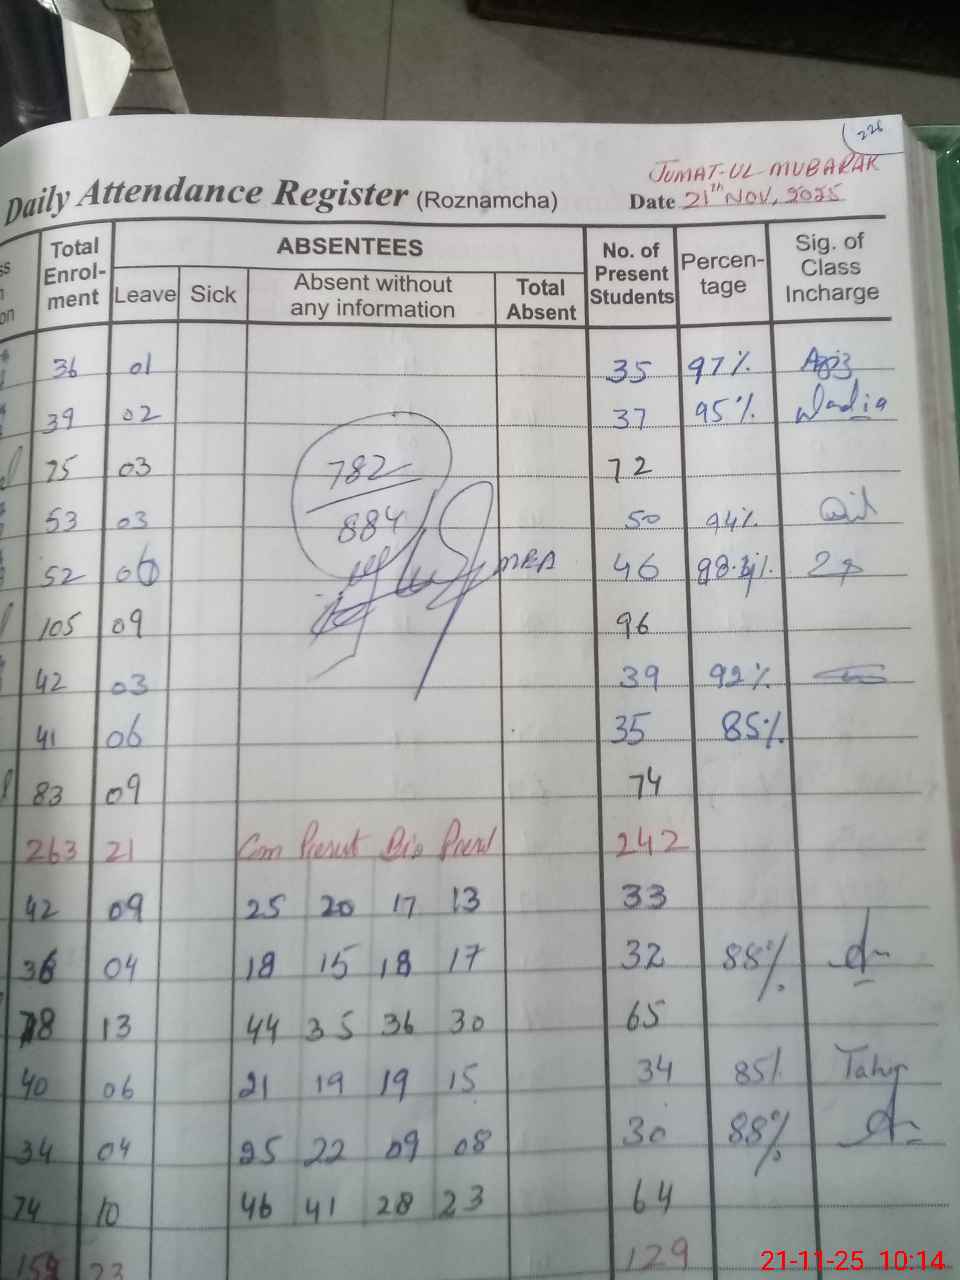 226
JUMAT-UL MUBARAK
Daily Attendance Register (Roznamcha) Date 21th NOV, 2025
Total Enrol-ment ABSENTEES No. of Present Students Percen-tage Sig. of Class Incharge
Leave Sick Absent without any information Total Absent
36 01 35 97% Aziz
39 02 37 95% Nadia
75 03 72
53 03 50 94%
52 06 46
105 09 96
782
884
42 03 39 92%
41 06 35 85%
83 09 74
263 21 Com Present Bio Present 242
42 09 25 20 17 13 33
36 04 18 15 18 17 32 88%
78 13 44 35 36 30 65
40 06 21 19 19 15 34 85%
34 04 25 22 09 08 30 88%
74 10 46 41 28 23 64
23 129
21-11-25 10:14